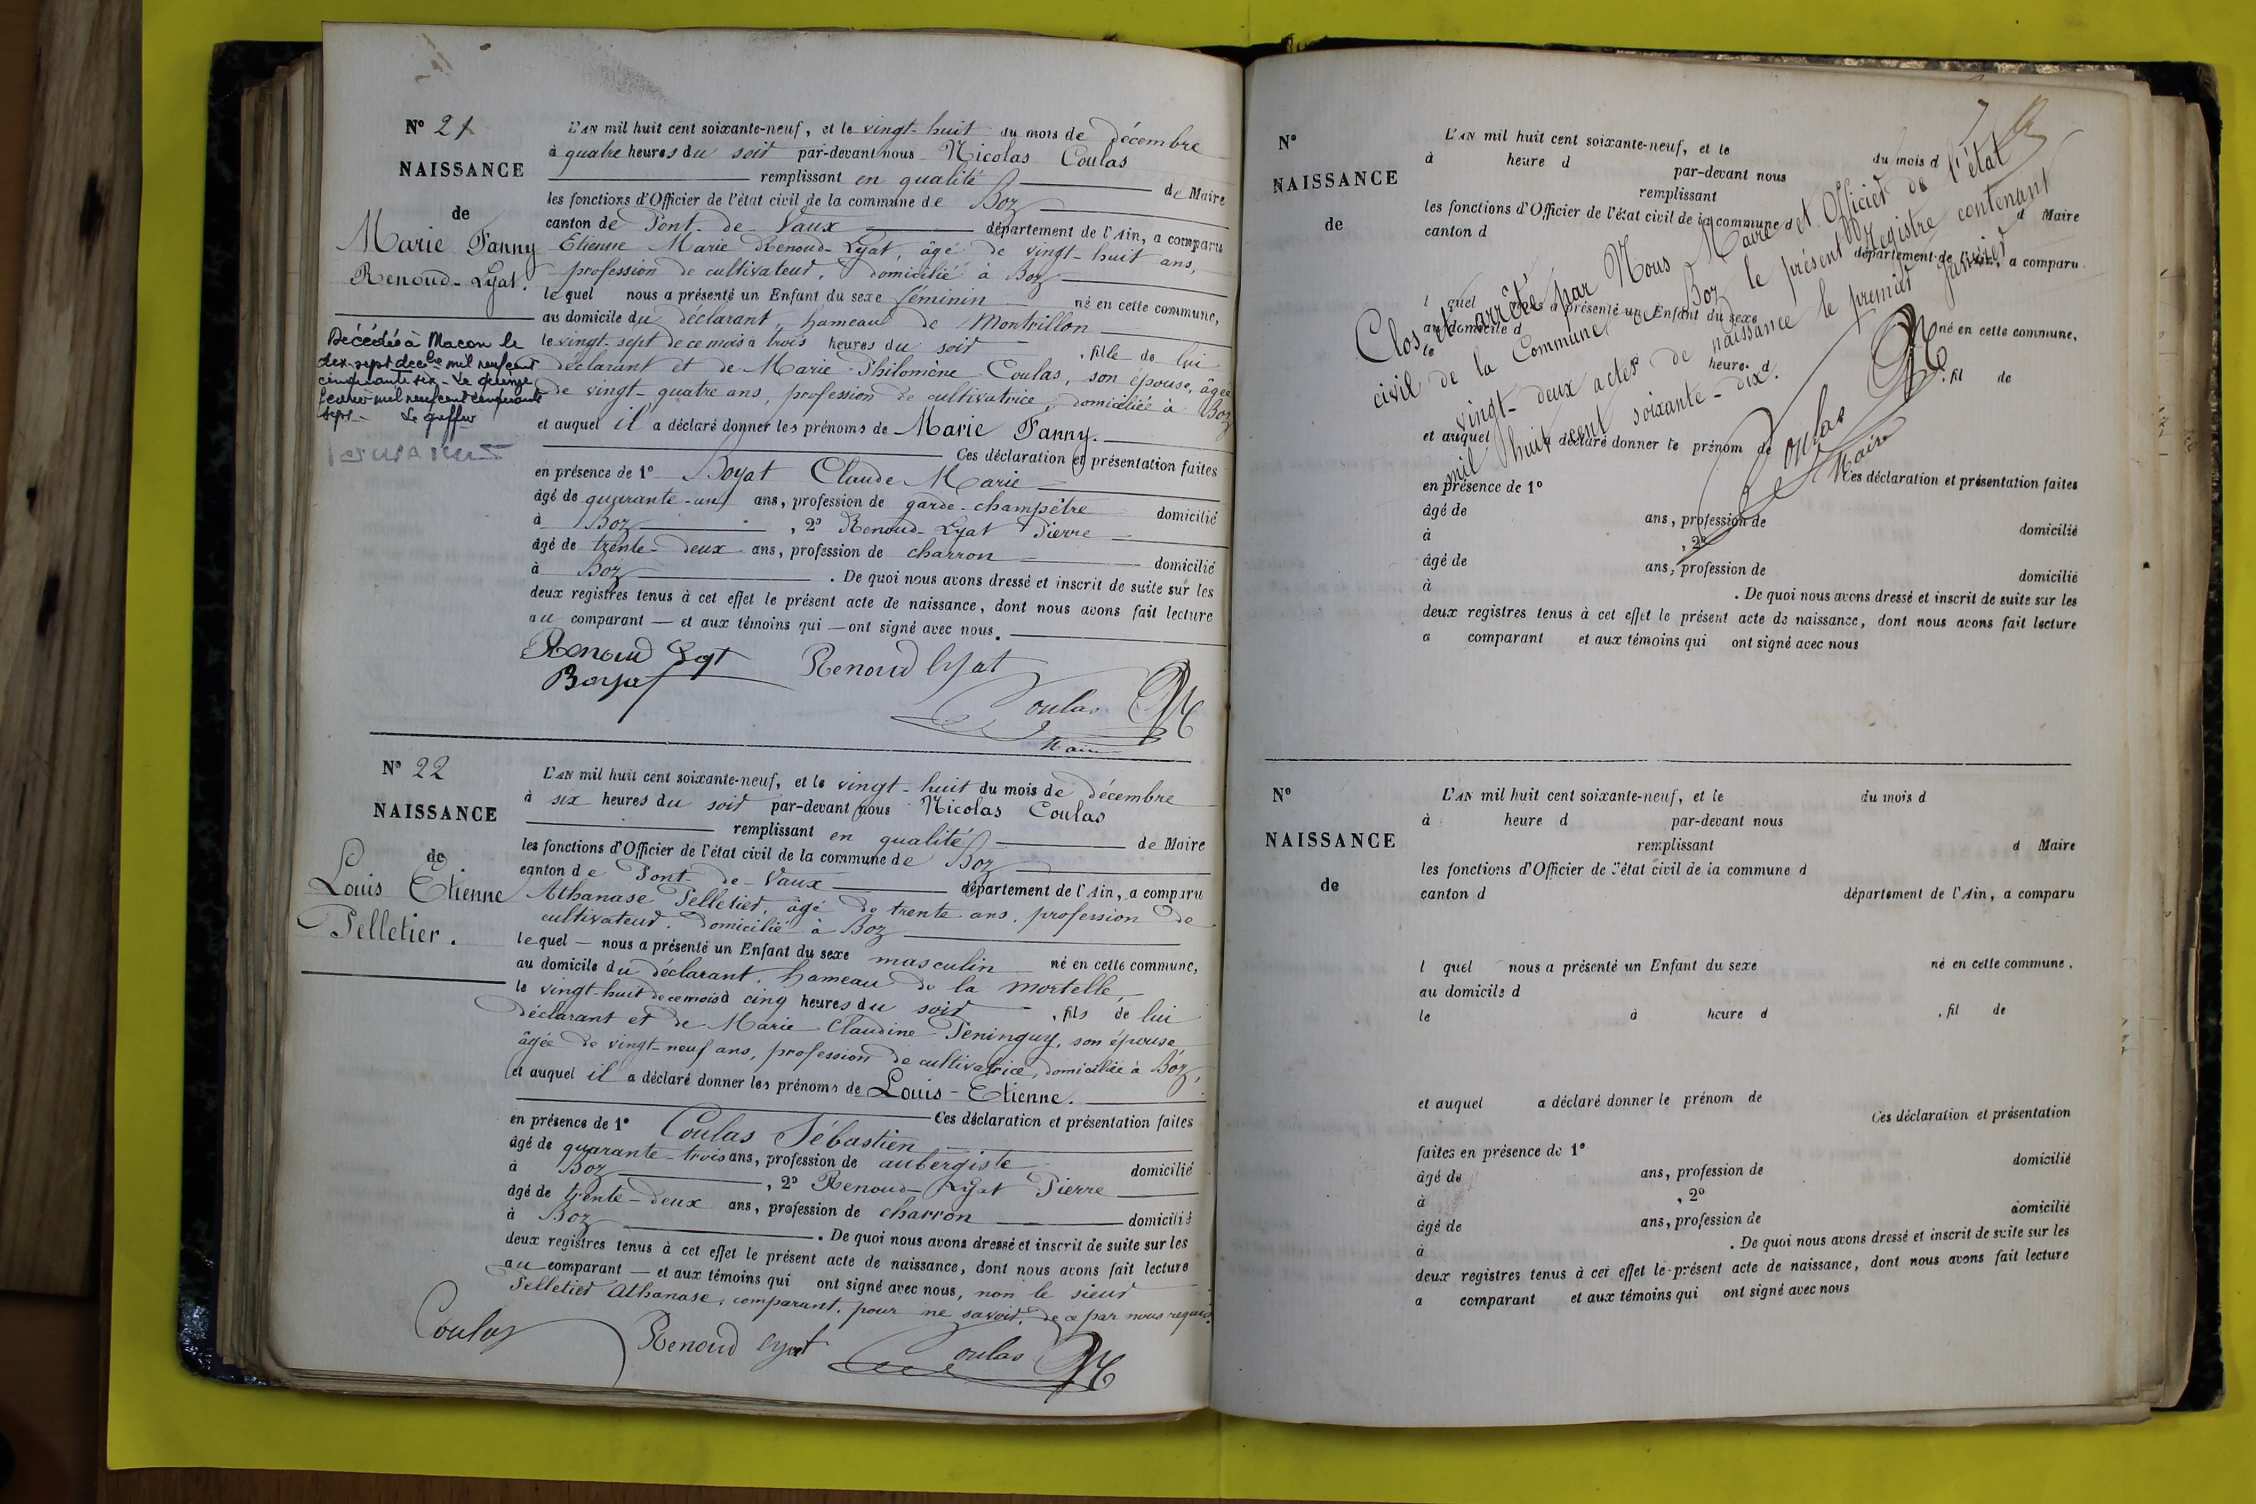 N° 21
NAISSANCE
de
Marie Fanny
Renoud-Lyat.
Décédée à Macon le
dix-sept decbre mil neuf cent
cinquante six - Le quinze
fevrier mil neuf cent cinquante
sept - Le greffier
L'AN mil huit cent soixante-neuf, et le vingt-huit du mois de décembre
à quatre heures du soir par-devant nous Nicolas Coulas
remplissant en qualité de Maire
les fonctions d'Officier de l'état civil de la commune de Boz
canton de Pont-de-Vaux département de l'Ain, a comparu
Etienne Marie Renoud-Lyat, âgé de vingt-huit ans,
profession de cultivateur, domicilié à Boz
lequel nous a présenté un Enfant du sexe féminin né en cette commune,
au domicile du déclarant, hameau de Montrillon
le vingt-sept de ce mois à trois heures du soir , fille de lui
déclarant et de Marie Philomène Coulas, son épouse, âgée
de vingt-quatre ans, profession de cultivatrice, domiciliée à Boz
et auquel il a déclaré donner les prénoms de Marie Fanny.
Ces déclaration et présentation faites
en présence de 1° Boyat Claude Marie
âgé de quarante-un ans, profession de garde-champêtre domicilié
à Boz , 2° Renoud-Lyat Pierre
âgé de trente-deux ans, profession de charron domicilié
à Boz . De quoi nous avons dressé et inscrit de suite sur les
deux registres tenus à cet effet le présent acte de naissance, dont nous avons fait lecture
au comparant — et aux témoins qui — ont signé avec nous.
Renoud Lyat Renoud lyat
Boyat
Coulas
Maire
N° 22
NAISSANCE
de
Louis Etienne
Pelletier.
L'AN mil huit cent soixante-neuf, et le vingt-huit du mois de décembre
à six heures du soir par-devant nous Nicolas Coulas
remplissant en qualité de Maire
les fonctions d'Officier de l'état civil de la commune de Boz
canton de Pont-de-Vaux département de l'Ain, a comparu
Athanase Pelletier, âgé de trente ans, profession de
cultivateur, domicilié à Boz
lequel — nous a présenté un Enfant du sexe masculin né en cette commune,
au domicile du déclarant, hameau de la Mortelle,
le vingt-huit de ce mois à cinq heures du soir , fils de lui
déclarant et de Marie Claudine Peninguy, son épouse
âgée de vingt-neuf ans, profession de cultivatrice, domiciliée à Boz,
et auquel il a déclaré donner les prénoms de Louis-Etienne.
Ces déclaration et présentation faites
en présence de 1° Coulas Sébastien
âgé de quarante-trois ans, profession de aubergiste domicilié
à Boz , 2° Renoud-Lyat Pierre
âgé de trente-deux ans, profession de charron domicilié
à Boz . De quoi nous avons dressé et inscrit de suite sur les
deux registres tenus à cet effet le présent acte de naissance, dont nous avons fait lecture
au comparant — et aux témoins qui ont signé avec nous, non le sieur
Pelletier Athanase, comparant, pour ne savoir, de ce par nous requis.
Coulas Renoud lyat Coulas
N°
NAISSANCE
de
L'AN mil huit cent soixante-neuf, et le du mois d
à heure d par-devant nous
remplissant d Maire
les fonctions d'Officier de l'état civil de la commune d
canton d département de l'Ain, a comparu
l quel nous a présenté un Enfant du sexe né en cette commune,
au domicile d
le heure d , fil de
et auquel a déclaré donner le prénom de
Ces déclaration et présentation faites
en présence de 1°
âgé de ans, profession de domicilié
à , 2°
âgé de ans, profession de domicilié
à . De quoi nous avons dressé et inscrit de suite sur les
deux registres tenus à cet effet le présent acte de naissance, dont nous avons fait lecture
a comparant et aux témoins qui ont signé avec nous
Clos et arrêté par Nous Maire et Officier de l'état
civil de la Commune de Boz le présent Registre contenant
vingt-deux actes de naissance le premier Janvier
mil huit cent soixante-dix.
Coulas
Maire
N°
NAISSANCE
de
L'AN mil huit cent soixante-neuf, et le du mois d
à heure d par-devant nous
remplissant d Maire
les fonctions d'Officier de l'état civil de la commune d
canton d département de l'Ain, a comparu
l quel nous a présenté un Enfant du sexe né en cette commune.
au domicile d
le à heure d , fil de
et auquel a déclaré donner le prénom de
Ces déclaration et présentation
faites en présence de 1°
âgé de ans, profession de domicilié
à , 2°
âgé de ans, profession de domicilié
à . De quoi nous avons dressé et inscrit de suite sur les
deux registres tenus à cet effet le présent acte de naissance, dont nous avons fait lecture
a comparant et aux témoins qui ont signé avec nous